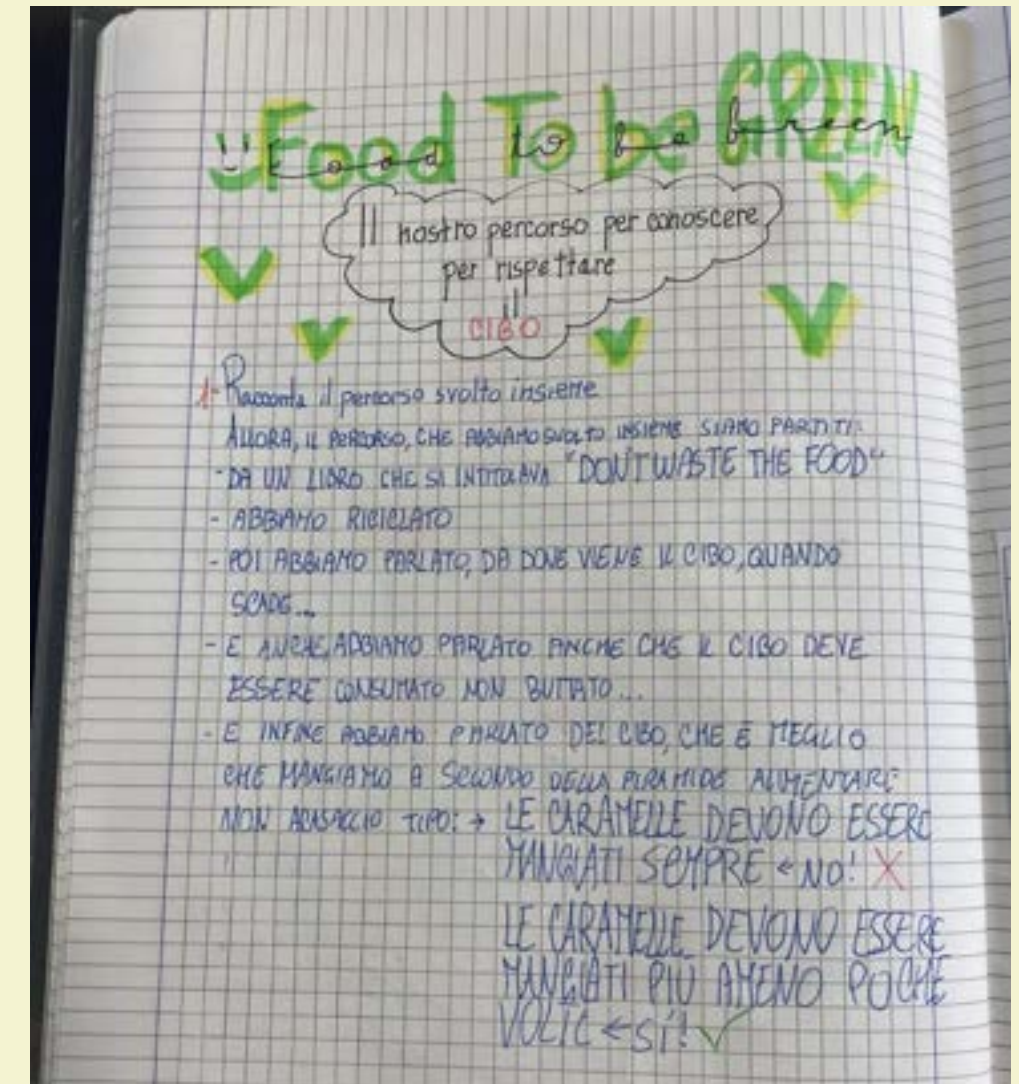 Food To be GREEN
Food to be Green
Il nostro percorso per conoscere
per rispettare
il
CIBO
1- Racconta il percorso svolto insieme
ALLORA, IL PERCORSO, CHE ABBIAMO SVOLTO INSIEME SIAMO PARTITI:
- DA UN LIBRO CHE SI INTITOLAVA "DON'T WASTE THE FOOD"
- ABBIAMO RICICLATO
- POI ABBIAMO PARLATO, DA DOVE VIENE IL CIBO, QUANDO
SCADE...
- E ANCHE, ABBIAMO PARLATO ANCHE CHE IL CIBO DEVE
ESSERE CONSUMATO NON BUTTATO...
- E INFINE ABBIAMO PARLATO DEL CIBO, CHE È MEGLIO
CHE MANGIAMO A SECONDO DELLA PIRAMIDE ALIMENTARE
NON TIPO: → LE CARAMELLE DEVONO ESSERE
MANGIATI SEMPRE ← NO! X
LE CARAMELLE DEVONO ESSERE
MANGIATI PIÙ AMENO POCHE
← SÍ! ✓